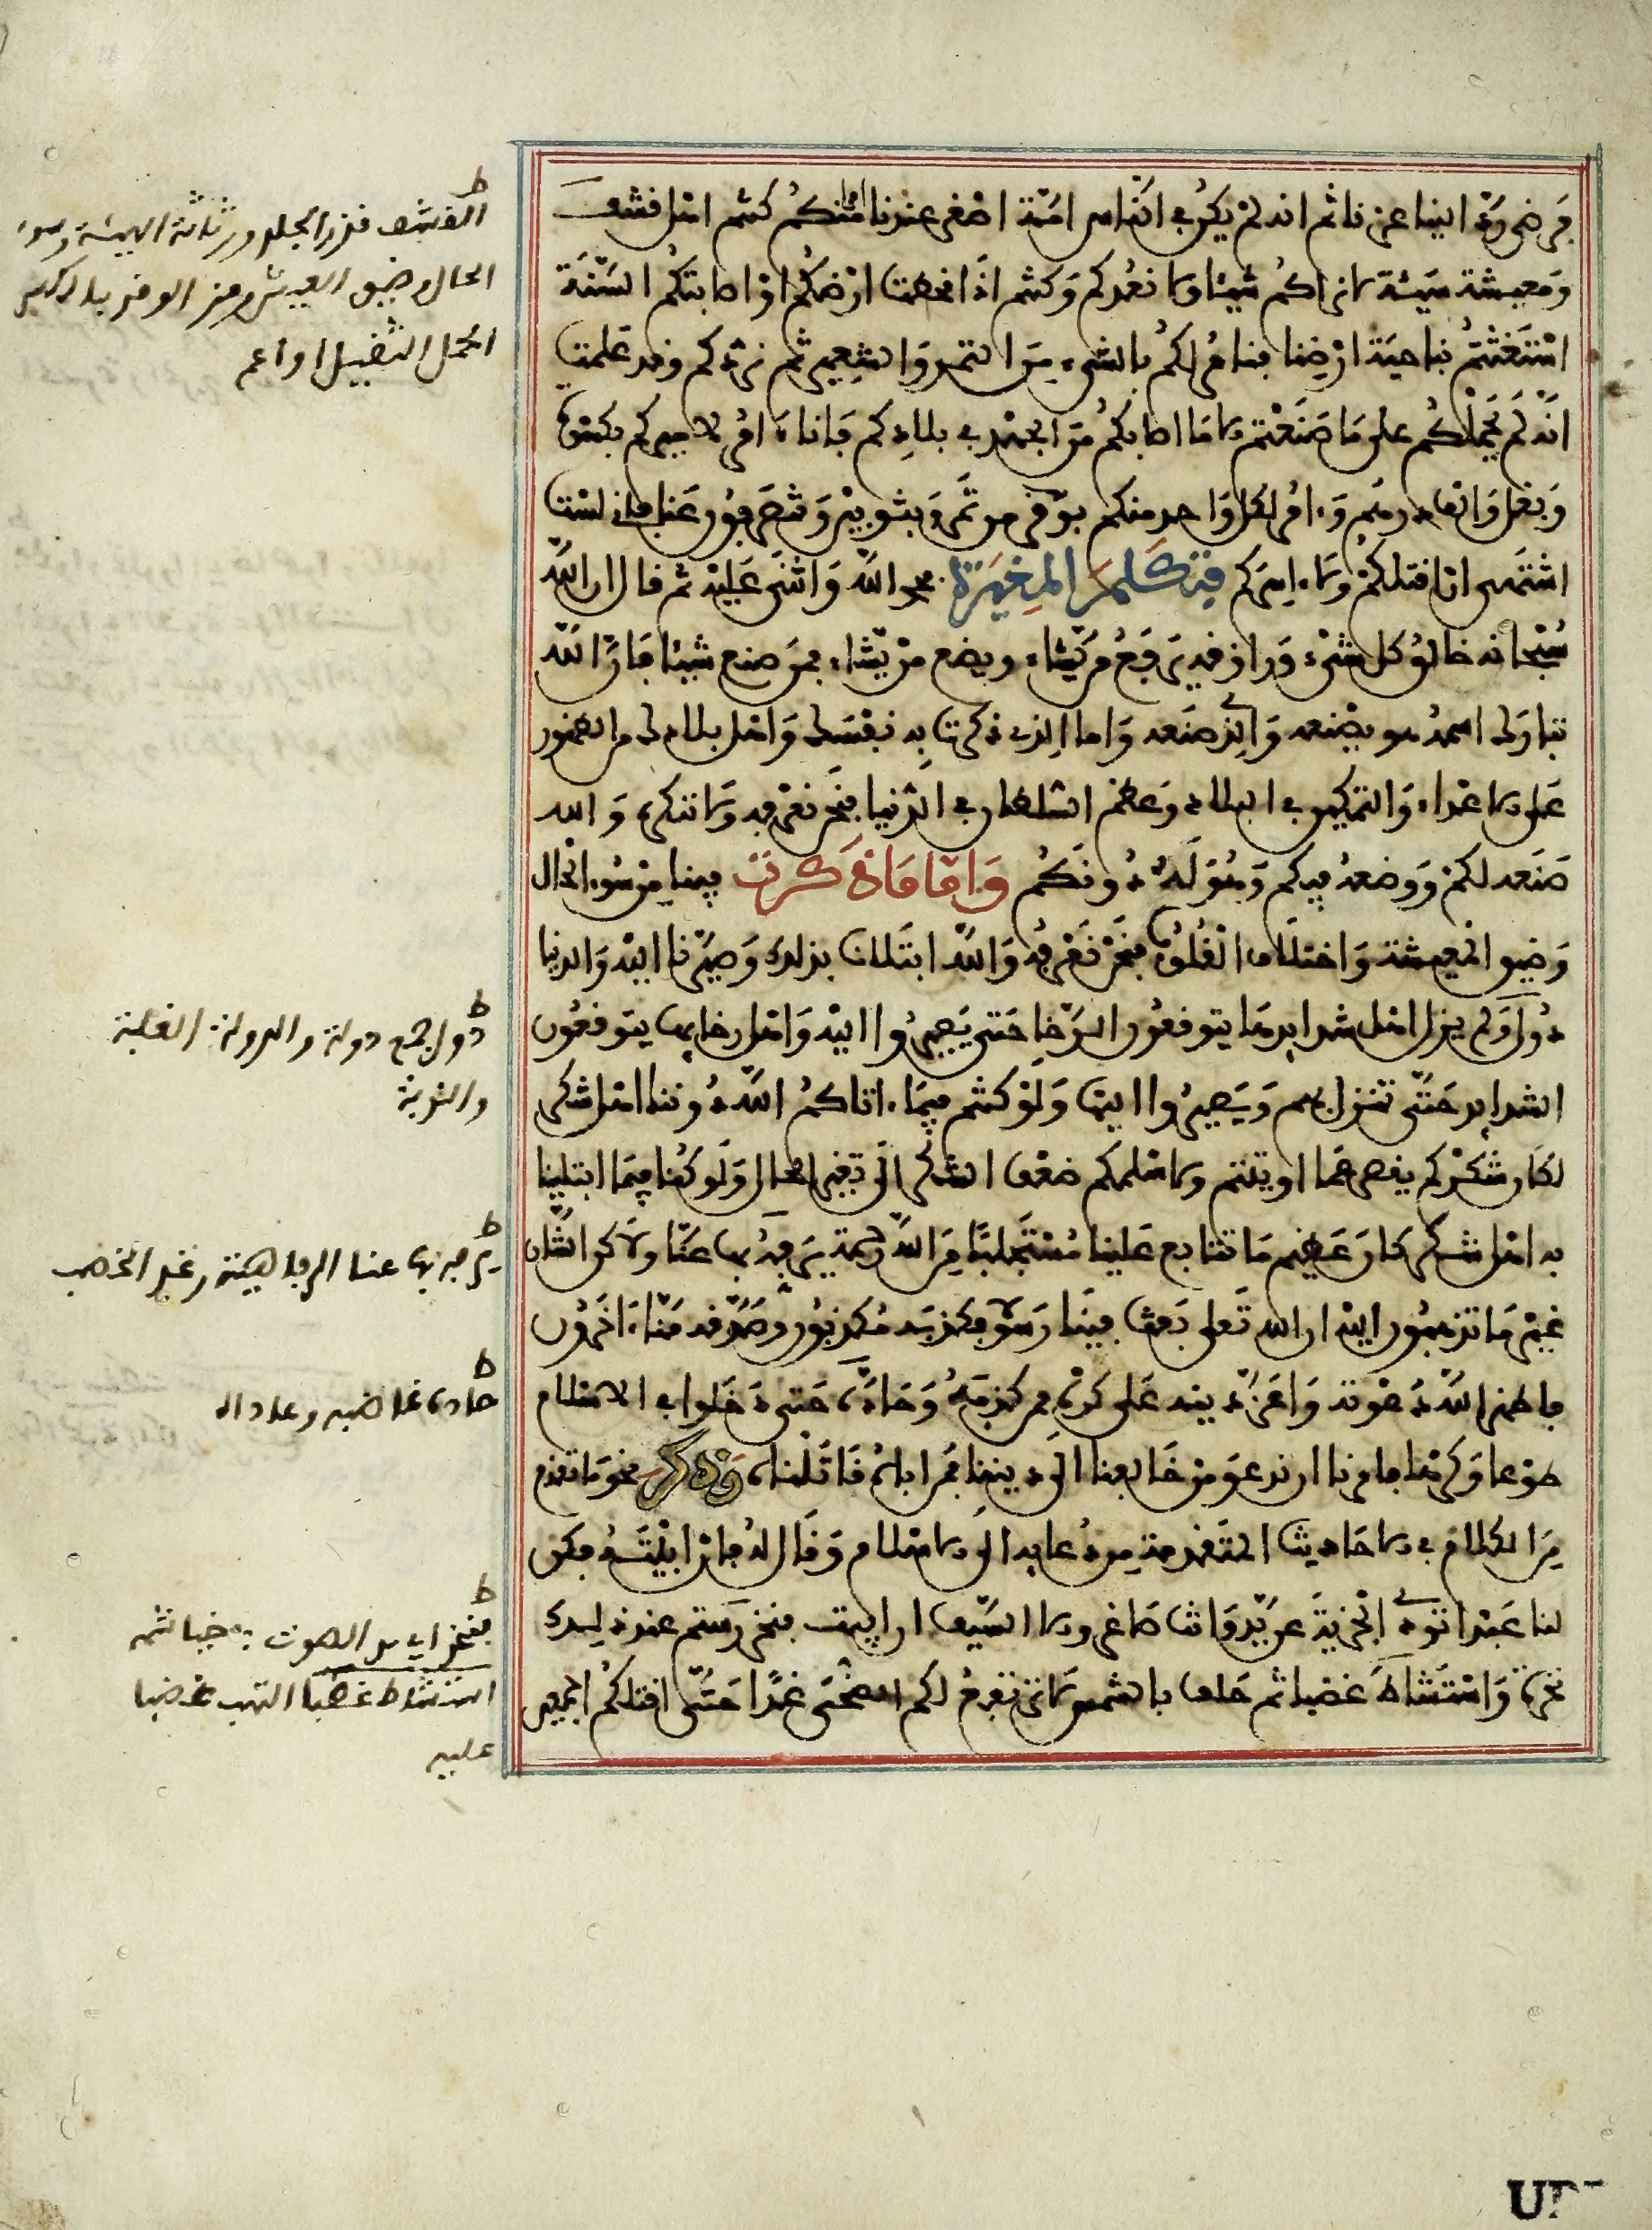 فرضى وردّ الينا عزنا ثم انه لم يكن في الناس امّة اصغر عندنا امرا منكم كنتم اهل قشف
ومعيشة سيئة لا نراكم شيئا ولا نعدكم وكنتم اذا قحطت ارضكم او اصابتكم السّنة
استغثتم بناحية ارضنا فنامر لكم بالشيء من التمر والشعير ثم نردكم وقد علمت
انه لم يحملكم على ما صنعتم الا ما اصابكم من الجهد في بلادكم فانا ءامر لاميركم بكسوة
وبغل والف درهم وءامر لكل واحد منكم بوقر من تمر وبثوبين وتنصرفون عنا فإني لست
اشتهي ان اقتلكم ولا ءاسركم فتكلم المغيرة فحمد الله واثنى عليه ثم قال ان الله
سبحانه خالق كل شيء ورازقه يرفع من يشاء ويضع من يشاء فمن صنع شيئا فان الله
تبارك اسمه هو يصنعه والذي صنعه واما الذي ذكرت به نفسك واهل بلادك من الظهور
على الاعداء والتمكين في البلاد وعظم السلطان في الدنيا فنحن نعرفه ولا ننكره والله
صنعه لكم ووضعه فيكم وهو له دونكم واما ما ذكرت فينا من سوء الحال
وضيق المعيشة واختلاف القلوب فنحن نعرفه والله ابتلانا بذلك وصيرنا اليه والدنيا
دول ولم يزل اهل شدايدها يتوقعون الرخا حتى يصيروا اليه واهل رخايها يتوقعون
الشدايد حتى تنزل بهم ويصيروا اليها ولو كنتم فيما ءاتاكم الله دوننا اهل شكر
لكان شكركم يقصر عما اوتيتم ولاسلمكم ضعف الشكر الى تغير الحال ولو كنا فيما ابتلينا
به اهل شكر كان عظيم ما تتابع علينا مستجلبا من الله رحمة يرفه بها عنا ولاكن الشان
غير ما تذهبون اليه ان الله تعلى بعث فينا رسولا فكذبه مكذبون وصدقه منا ءاخرون
فاظهر الله دعوته واعز دينه على كره ممن كذبه وحادّه حتى دخلوا في الاسلام
طوعا وكرها فامرنا ان ندعو من خالفنا الى ديننا فمن اباه قاتلناه وذكر نحو ما تقدم
من الكلام في الاحاديث المتقدمة من دعايه الى الاسلام وقال له فان ابيت فكن
لنا عبدا تودي الجزية عن يد وانت صاغر والا السيف ان ابيت فنخر رستم عند ذلك
نخرة واستشاط غضبا ثم حلف بالشمس لا ترتفع لكم الضحى غدا حتى اقتلكم اجمعين
ط
القشف قذر الجلد ورثاثة الهيئة وسوء
الحال وضيق العيش من الوقر بالكسر
الحمل الثقيل او اعم
ط
دول جمع دولة والدولة الغلبة
والنوبة
ط
يرفه بها عنا الرفاهية رغد الخصب
ط
حاده غاضبه وعاداه
ط
فنخر اي مد الصوت في خياشمه
استشاط غضبا التهب غضبا
عليه